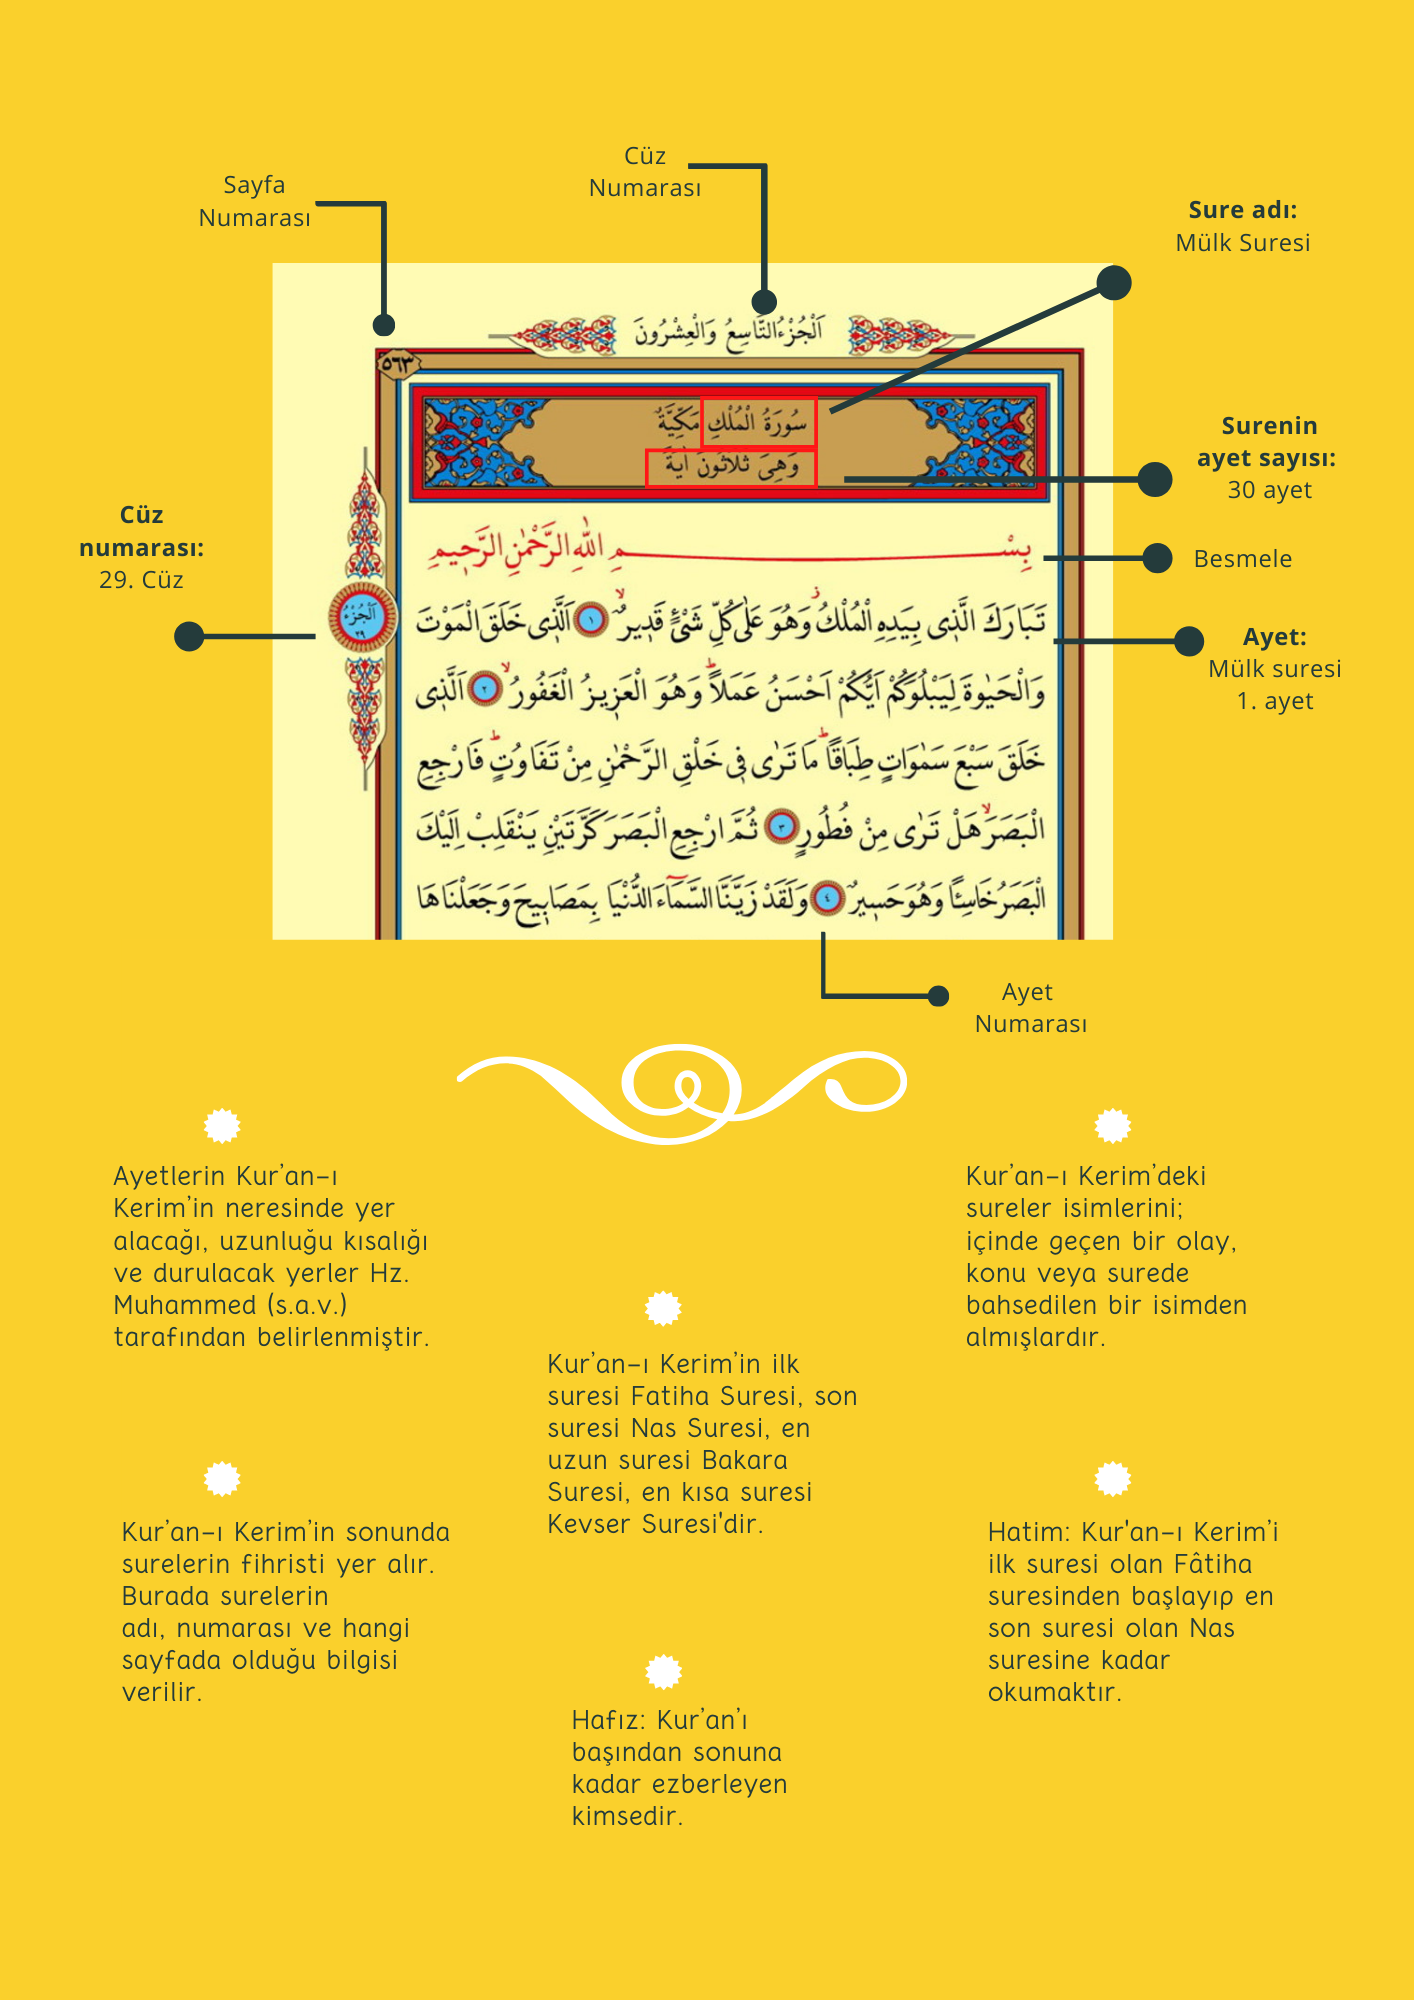 Cüz
Numarası
Sayfa
Numarası
Sure adı:
Mülk Suresi
اَلْجُزْءُ التَّاسِعُ وَالْعِشْرُونَ
٥٦٣
سُورَةُ الْمُلْكِ مَكِّيَّةٌ
وَهِىَ ثَلَاثُونَ اٰيَةً
Surenin
ayet sayısı:
30 ayet
Cüz
numarası:
29. Cüz
اَلْجُزْءُ
٢٩
بِسْمِ اللّٰهِ الرَّحْمٰنِ الرَّحٖيمِ
Besmele
تَبَارَكَ الَّذٖى بِيَدِهِ الْمُلْكُ وَهُوَ عَلٰى كُلِّ شَىْءٍ قَدٖيرٌ ١ اَلَّذٖى خَلَقَ الْمَوْتَ
Ayet:
Mülk suresi
1. ayet
وَالْحَيٰوةَ لِيَبْلُوَكُمْ اَيُّكُمْ اَحْسَنُ عَمَلًا وَهُوَ الْعَزٖيزُ الْغَفُورُ ٢ اَلَّذٖى
خَلَقَ سَبْعَ سَمٰوَاتٍ طِبَاقًا مَا تَرٰى فٖى خَلْقِ الرَّحْمٰنِ مِنْ تَفَاوُتٍ فَارْجِعِ
الْبَصَرَ هَلْ تَرٰى مِنْ فُطُورٍ ٣ ثُمَّ ارْجِعِ الْبَصَرَ كَرَّتَيْنِ يَنْقَلِبْ اِلَيْكَ
الْبَصَرُ خَاسِئًا وَهُوَ حَسٖيرٌ ٤ وَلَقَدْ زَيَّنَّا السَّمَاءَ الدُّنْيَا بِمَصَابٖيحَ وَجَعَلْنَاهَا
Ayet
Numarası
Ayetlerin Kur’an-ı
Kerim’in neresinde yer
alacağı, uzunluğu kısalığı
ve durulacak yerler Hz.
Muhammed (s.a.v.)
tarafından belirlenmiştir.
Kur’an-ı Kerim’deki
sureler isimlerini;
içinde geçen bir olay,
konu veya surede
bahsedilen bir isimden
almışlardır.
Kur’an-ı Kerim’in ilk
suresi Fatiha Suresi, son
suresi Nas Suresi, en
uzun suresi Bakara
Suresi, en kısa suresi
Kevser Suresi'dir.
Kur’an-ı Kerim’in sonunda
surelerin fihristi yer alır.
Burada surelerin
adı, numarası ve hangi
sayfada olduğu bilgisi
verilir.
Hatim: Kur'an-ı Kerim’i
ilk suresi olan Fâtiha
suresinden başlayıp en
son suresi olan Nas
suresine kadar
okumaktır.
Hafız: Kur’an’ı
başından sonuna
kadar ezberleyen
kimsedir.